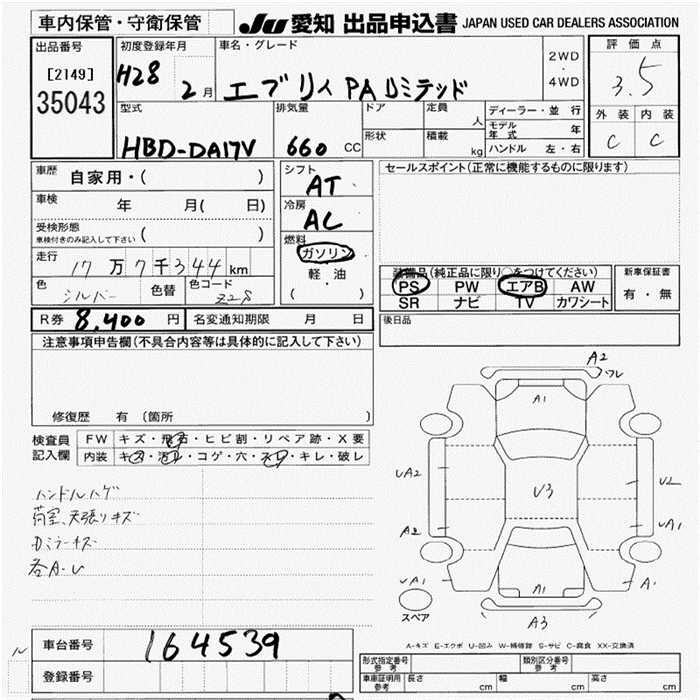 車内保管・守衛保管
JU 愛知 出品申込書 JAPAN USED CAR DEALERS ASSOCIATION
出品番号
[2149]
35043
初度登録年月
H28 2月
車名・グレード
エブリィ PAリミテッド
2WD
・
4WD
評価点
3.5
外装 内装
C C
型式
HBD-DA17V
排気量
660 CC
ドア
形状
定員 人
積載 kg
ディーラー・並行
モデル年式 年
ハンドル 左・右
車歴 自家用・( )
車検 年 月( 日)
受検形態
車検付きのみ記入して下さい ( )
走行 17万7千344km
色 シルバー 色替 色コード Z2S
シフト
AT
冷房
AC
燃料
ガソリン
軽・油
( ・ )
セールスポイント(正常に機能するものに限ります)
装備品(純正品に限り○をつけてください)
PS PW エアB AW
SR ナビ TV カワシート
新車保証書
有・無
後日品
R券 8,400円 名変通知期限 月 日
注意事項申告欄(不具合内容等は具体的に記入して下さい)
修復歴 有 (箇所 )
検査員記入欄
FW キズ・飛石・ヒビ割・リペア跡・X要
内装 キズ・汚レ・コゲ・穴・スレ・キレ・破レ
ハンドルハゲ
荷室、天張りキズ
Dミラーキズ
各A・U
A2
ワレ
A1
UA2
U3
U2
A2
UA1
UA1
A1
A・
A3
スペア
A-キズ E-エクボ U-凹み W-補修跡 S-サビ C-腐食 XX-交換済
車台番号 164539
登録番号
形式指定番号 参考
類別区分番号 参考
車庫証明用 参考 長さ cm 幅 cm 高さ cm